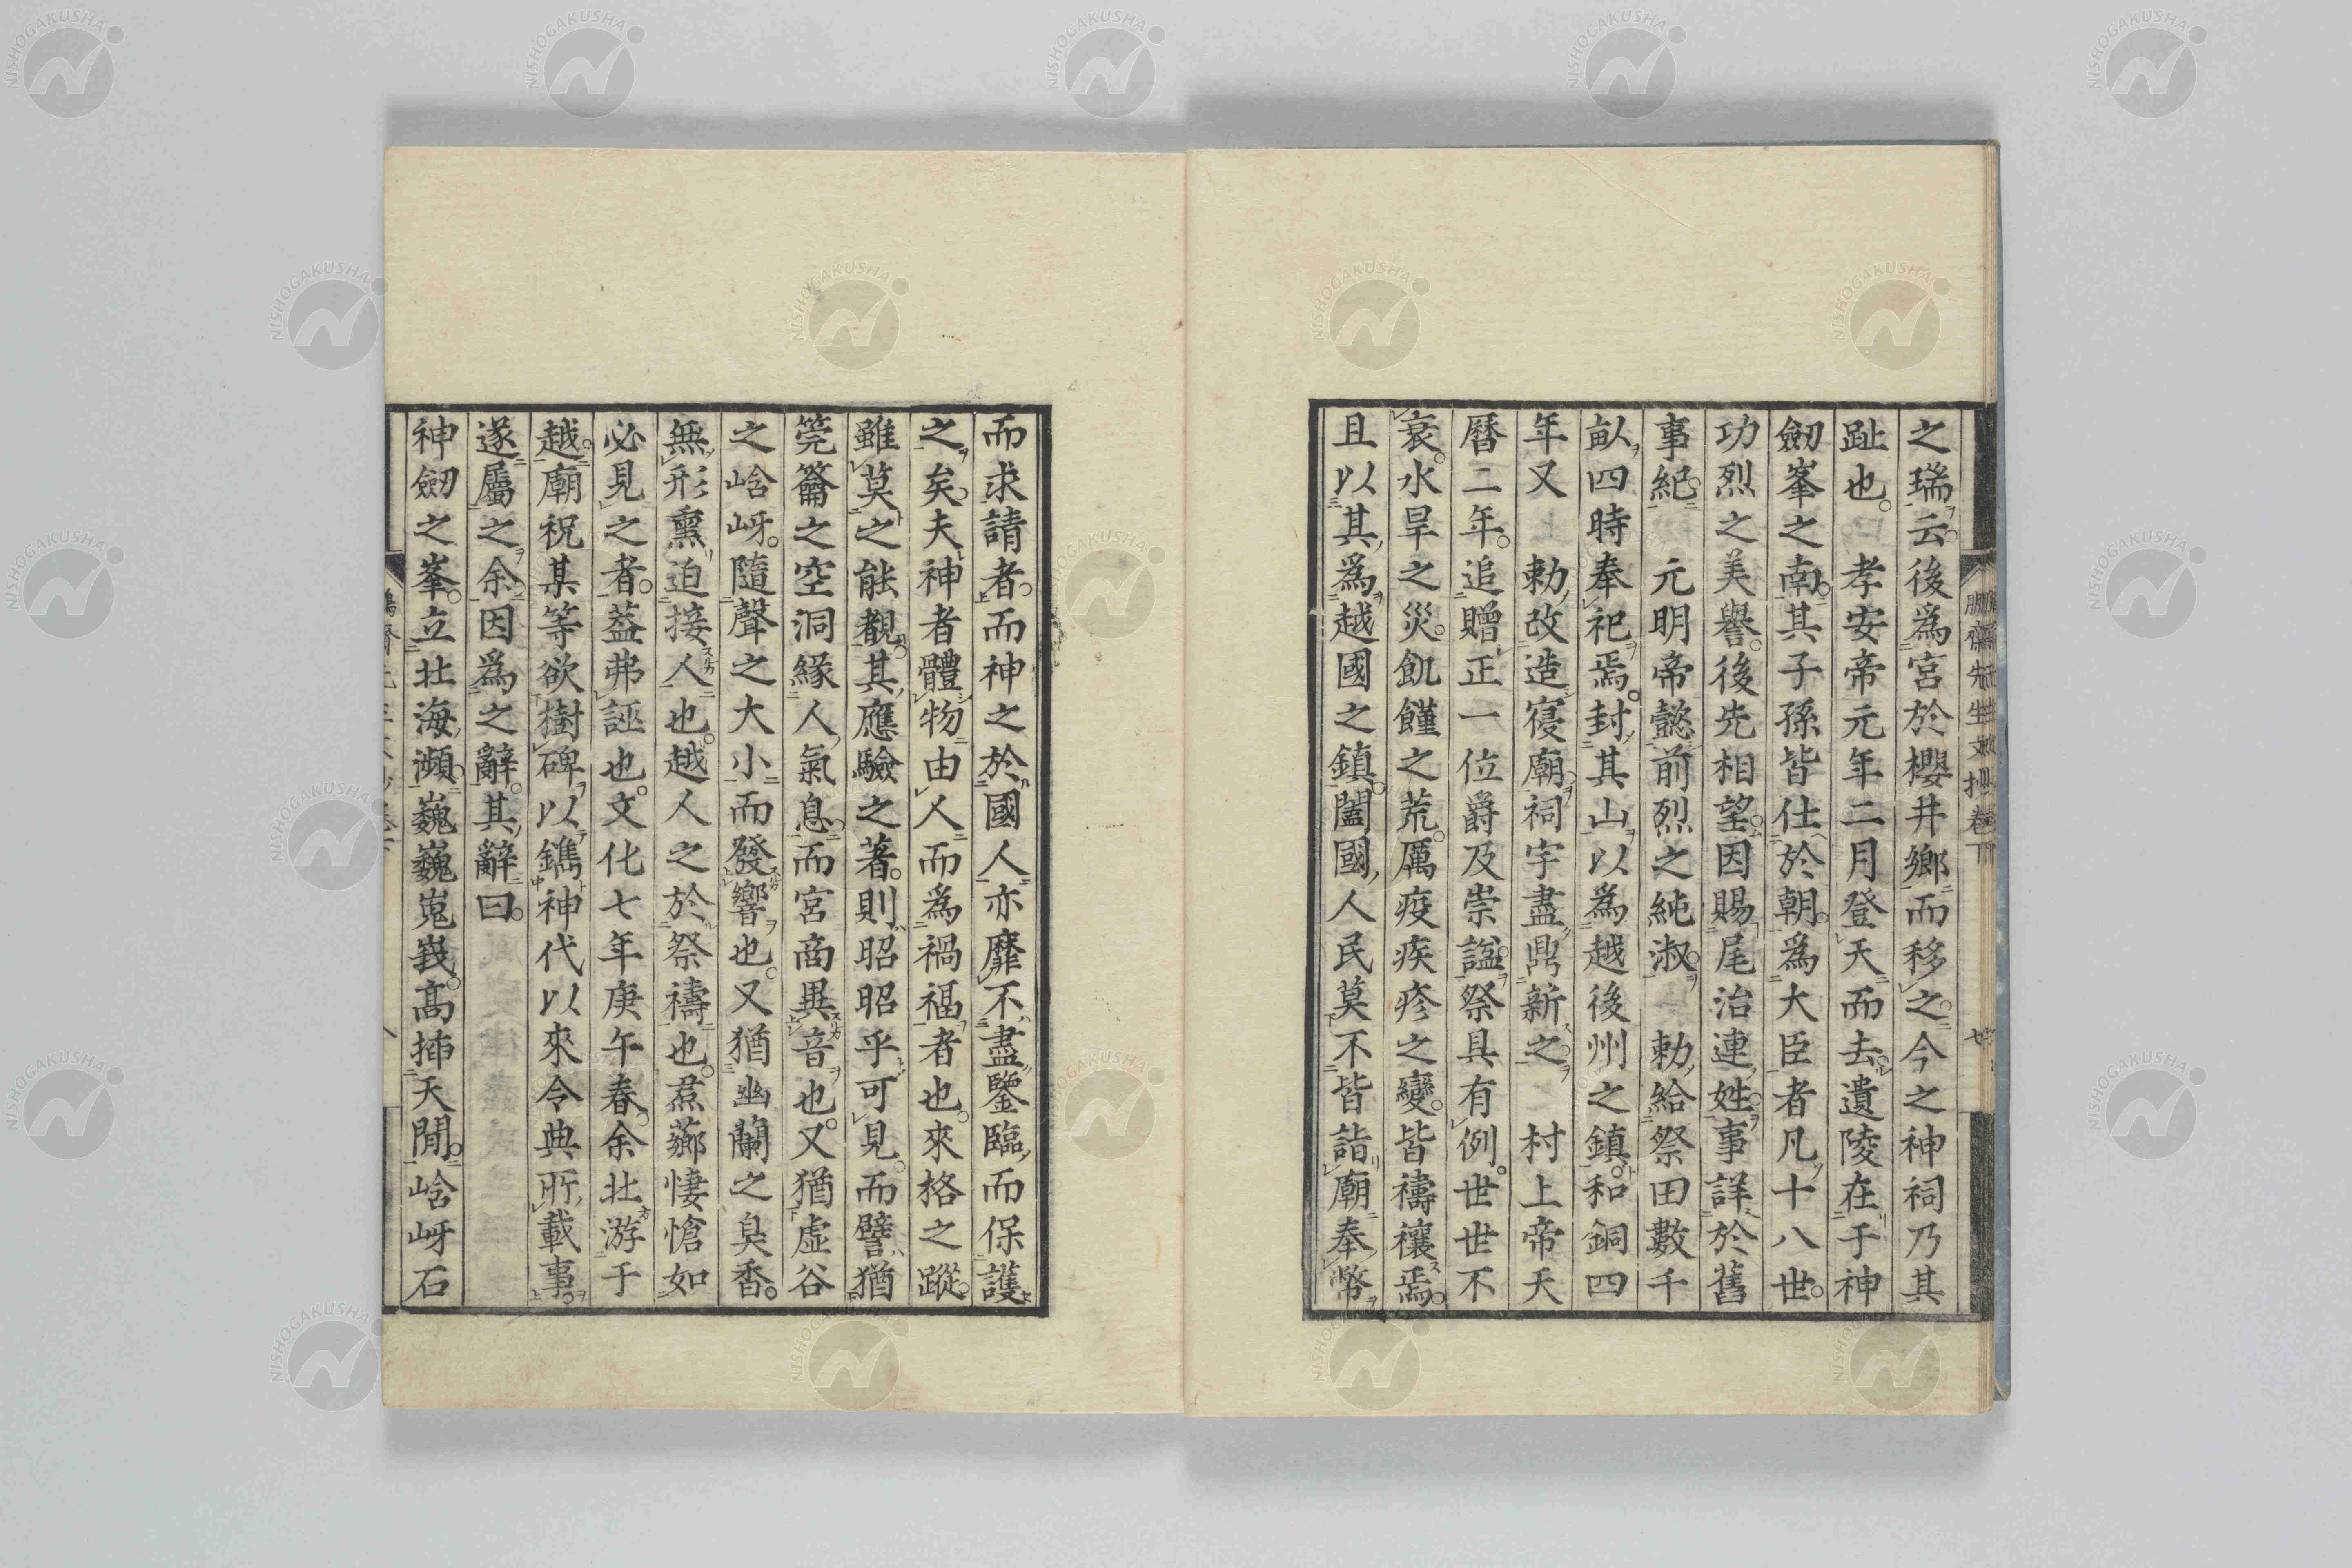 之瑞云後爲宮於櫻井鄉而移之今之神祠乃其
趾也。孝安帝元年二月登天而去遺陵在于神
劒峯之南。其子孫皆仕於朝。爲大臣者凡十八世。
功烈之美譽。後先相望。因賜尾治連姓。事詳於舊
事紀。元明帝懿前烈之純淑。勅給祭田數千
畝四時奉祀焉。封其山以爲越後州之鎮。和銅四
年又勅改造寑廟。祠宇盡鼎新之。村上帝天
曆二年。追贈正一位爵及崇諡。祭具有例。世世不
衰。水旱之災。飢饉之荒。厲疫疾疹之變。皆禱禳焉。
且以其爲越國之鎮。闔國人民莫不皆詣廟奉幣
而求請者。而神之於國人亦靡不盡鑒臨而保護
之矣。夫神者體物由人而爲禍福者也。來格之蹤。
雖莫之能覩。其應驗之著。則昭昭乎可見。而譬猶
筦籥之空洞緣人氣息。而宮商異音也。又猶虛谷
之峆岈。隨聲之大小而發響也。又猶幽蘭之臭香。
無形熏迫接人也。越人之於祭禱也。焄薌悽愴如
必見之者。葢弗誣也。文化七年庚午春。余北游于
越。廟祝某等欲樹碑以鐫神代以來令典所載事。
遂屬之余。因爲之辭。其辭曰。
神劒之峯。立北海瀕。巍巍嵬峩。高揷天閒。峆岈石
鵬齋先生文抄卷下
七
八
NISHOGAKUSHA